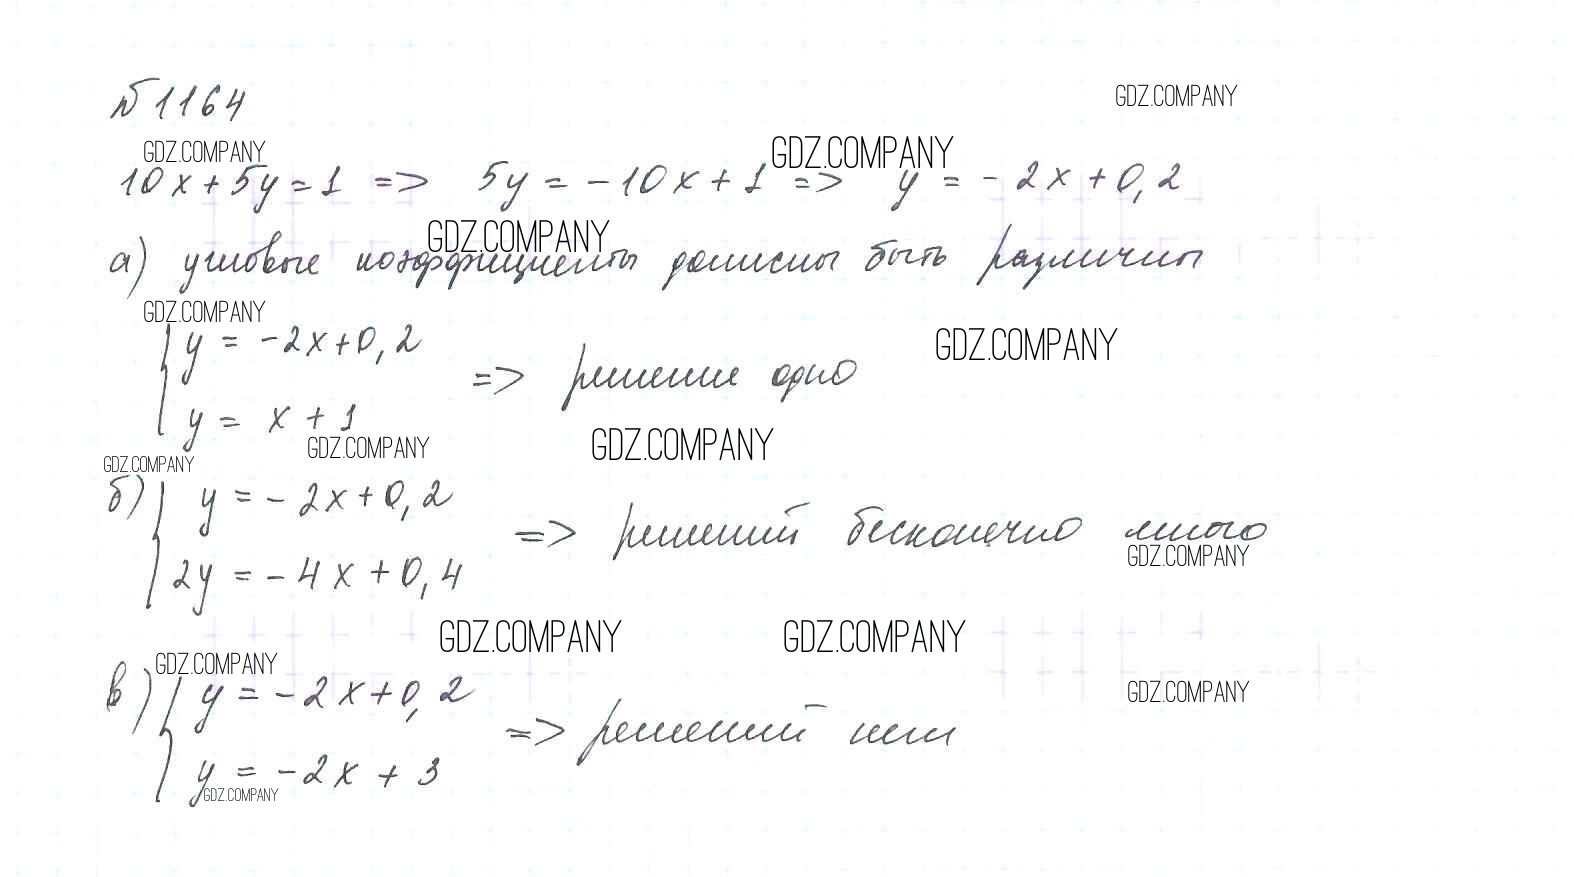 № 1164
GDZ.COMPANY
GDZ.COMPANY GDZ.COMPANY
10x + 5y = 1 => 5y = -10x + 1 => y = -2x + 0,2
GDZ.COMPANY
а) угловые коэффициенты должны быть различны
GDZ.COMPANY
{ y = -2x + 0,2
GDZ.COMPANY
=> решение одно
y = x + 1
GDZ.COMPANY GDZ.COMPANY
GDZ.COMPANY
б) { y = -2x + 0,2
=> решений бесконечно много
GDZ.COMPANY
2y = -4x + 0,4
GDZ.COMPANY GDZ.COMPANY
GDZ.COMPANY
в) { y = -2x + 0,2
GDZ.COMPANY
=> решений нет
y = -2x + 3
GDZ.COMPANY